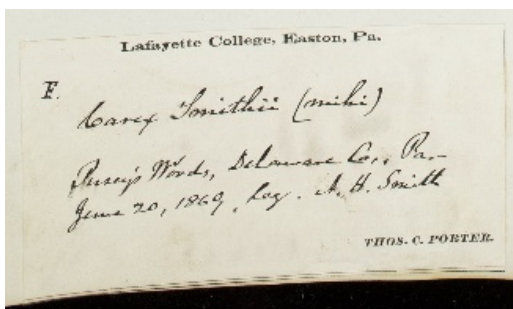 Lafayette College, Easton, Pa.
F.
Carex Smithii (mihi)
Pusey's Woods, Delaware Co., Pa.
June 20, 1869, Leg. A. H. Smith
THOS. C. PORTER.